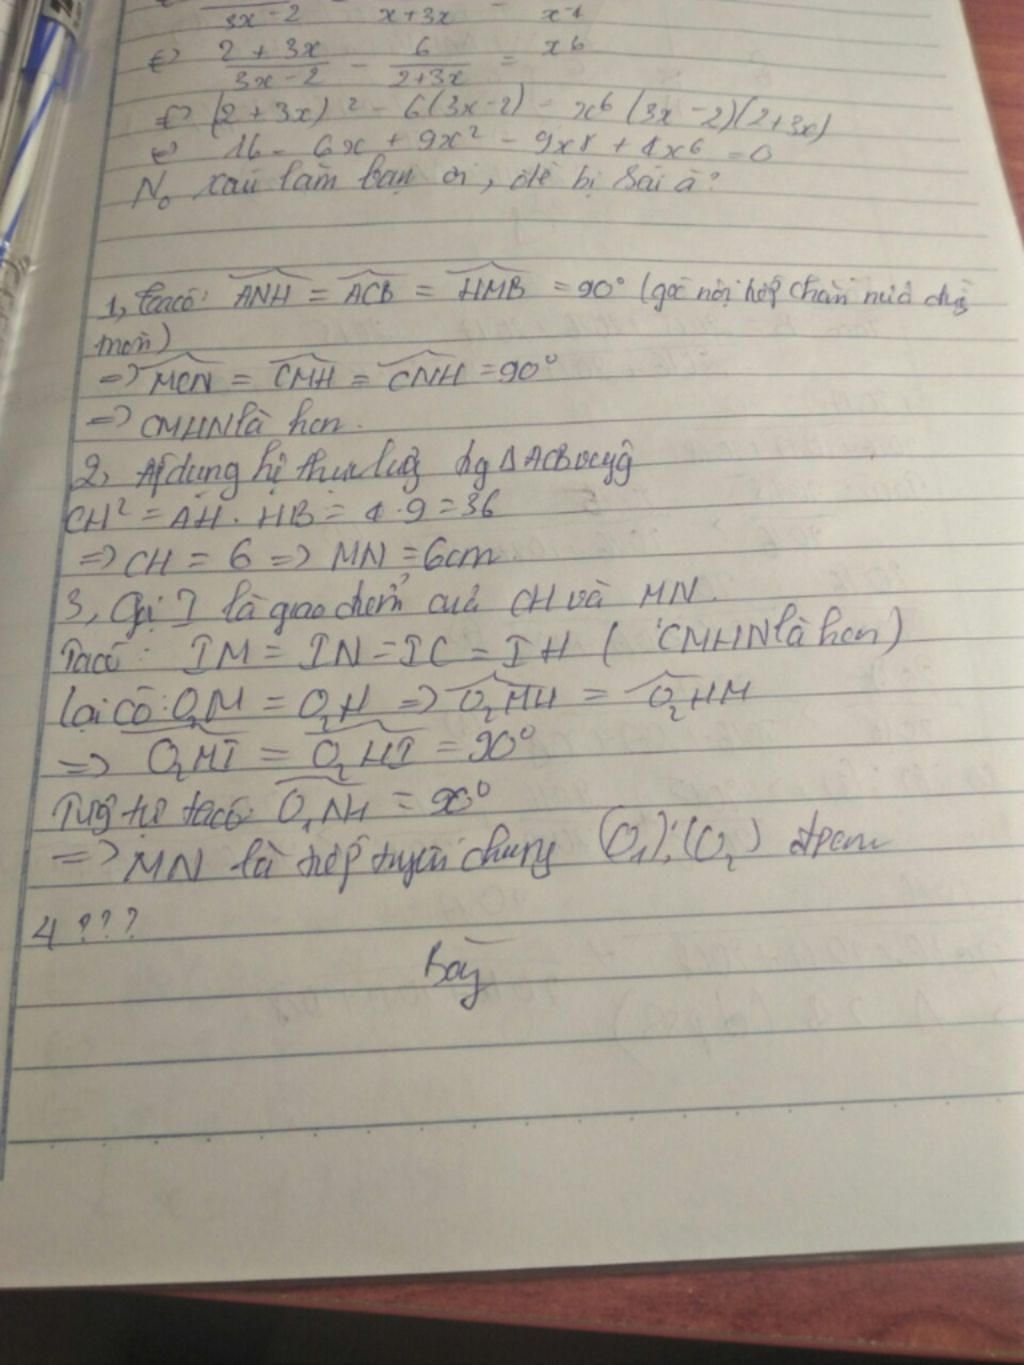 3x-2 x+3x x-1
⇔ 2+3x/3x-2 - 6/2+3x = x6
⇔ (2+3x)² - 6(3x-2) = x⁶(3x-2)(2+3x)
⇔ 16 - 6x + 9x² - 9x8 + 4x6 = 0
No xấu lắm bạn ơi, đề bị sai à?
1, ta có: ANH = ACB = HMB = 90° (góc nội tiếp chắn nửa đg
tròn)
=> MCN = CMH = CNH = 90°
=> CMHN là hcn.
2, Áp dụng hệ thức lượng ΔACB vuông
CH² = AH. HB = 4.9 = 36
=> CH = 6 => MN = 6cm
3, Gọi I là giao điểm của CH và MN.
Ta có: IM = IN = IC = IH ( CMHN là hcn)
Lại có: O₂M = O₂H => O₂MH = O₂HM
=> O₂MI = O₂HI = 90°
Tương tự ta có: O₁NH = 90°
=> MN là tiếp tuyến chung (O₁); (O₂) đpcm
4 ???